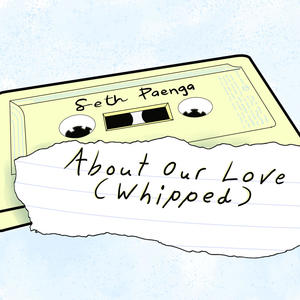 Seth Paenga
About Our Love
(Whipped)